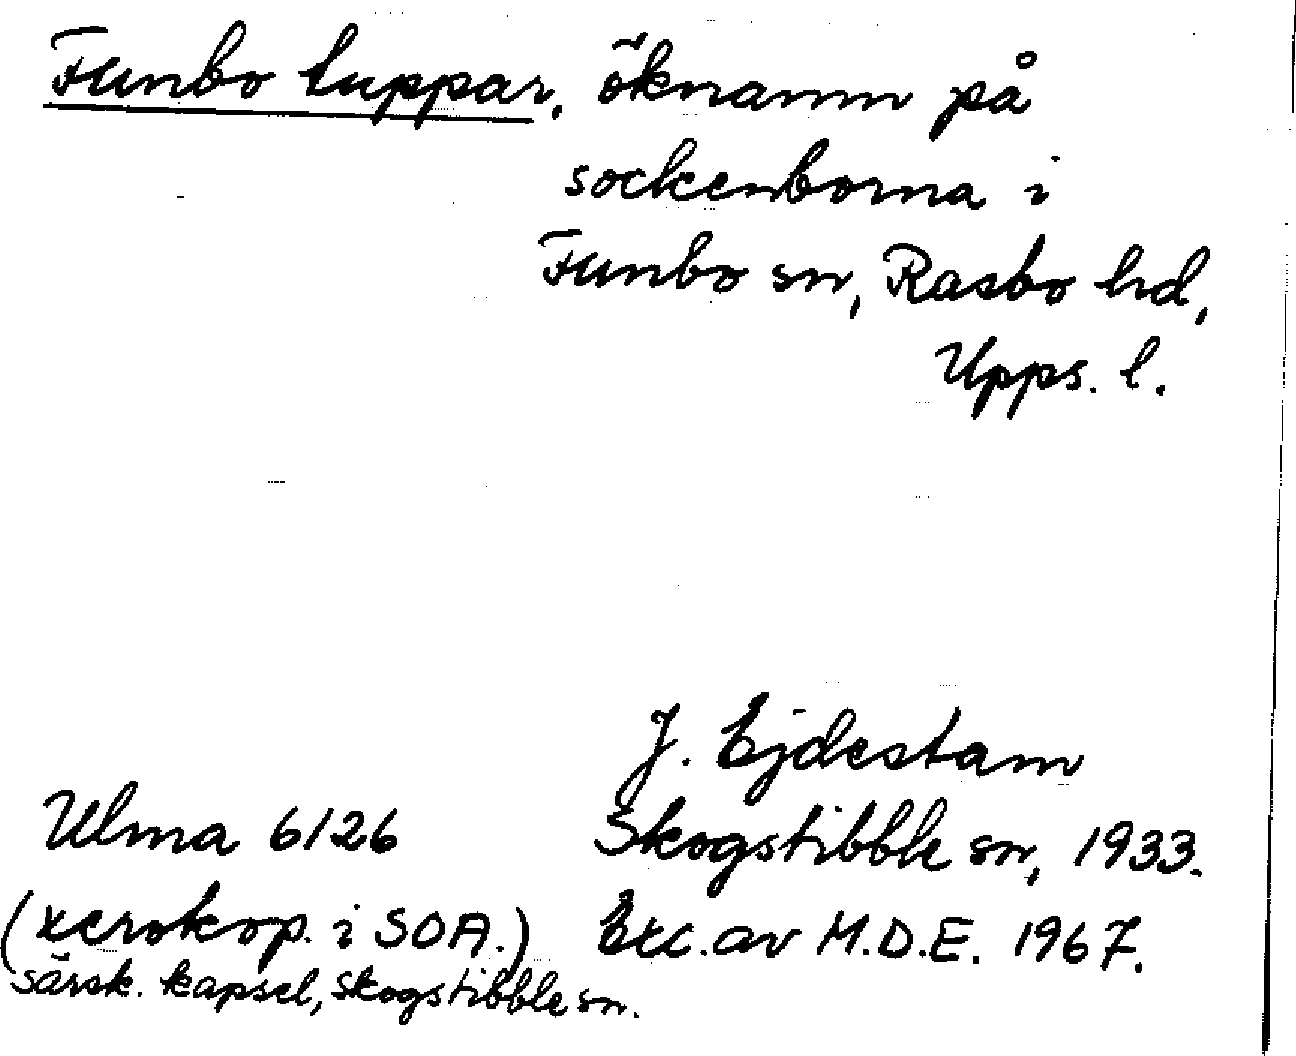 Funbo luppar, öknamn på
sockenborna i
Funbo sn, Rasbo hd,
Upps. l.
J. Ejdestam
Ulma 6126 Skogstibble sn, 1933.
(xerokop. i SOA.) Exc. av M.D.E. 1967.
särsk. kapsel, Skogstibble sn.